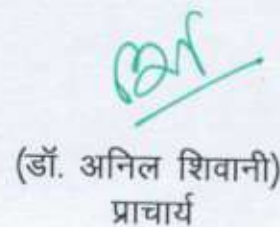 (डॉ. अनिल शिवानी)
प्राचार्य